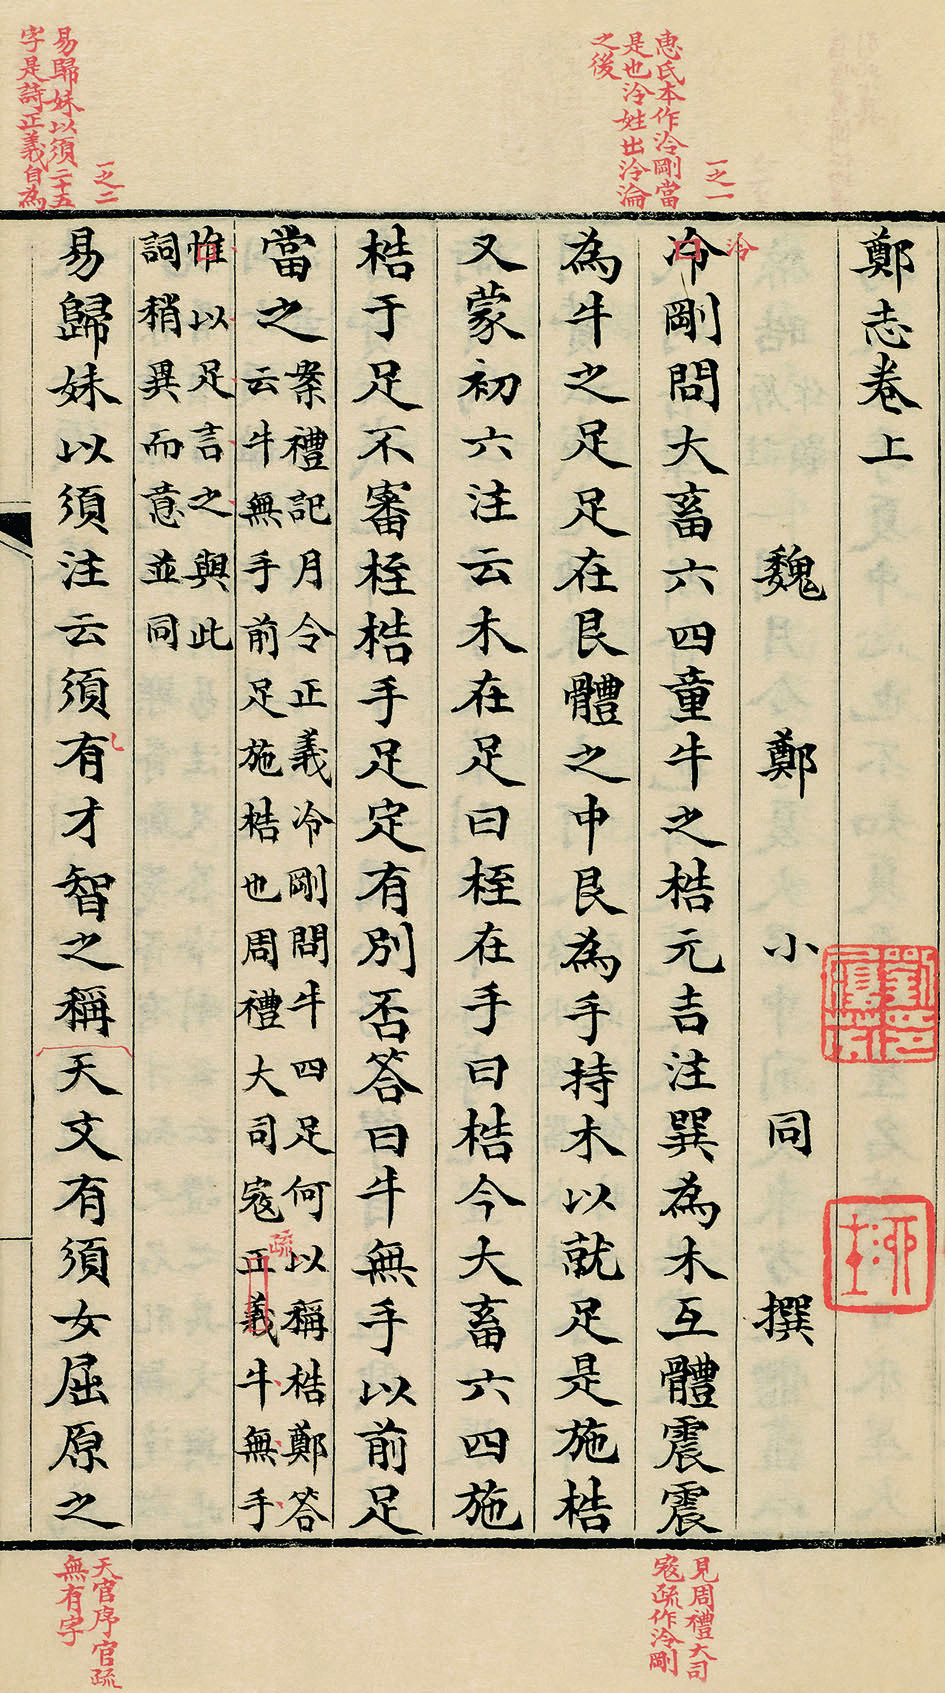 鄭志卷上
魏鄭小同撰
冷剛問大畜六四童牛之梏元吉注巽為木互體震震
泠
為牛之足足在艮體之中艮為手持木以就足是施梏
又蒙初六注云木在足曰桎在手曰梏今大畜六四施
梏于足不審桎梏手足定有別否答曰牛無手以前足
當之
案禮記月令正義冷剛問牛四足何以稱梏鄭答
云牛無手前足施梏也周禮大司寇正義牛無手
疏
惟以足言之與此
詞稍異而意並同
易歸妹以須注云須有才智之稱天文有須女屈原之
一之一
惠氏本作泠剛當
是也泠姓出泠淪
之後
一之二
易歸妹以須二十五
字是詩正義自為
見周禮大司
寇疏作泠剛
天官序官疏
無有字